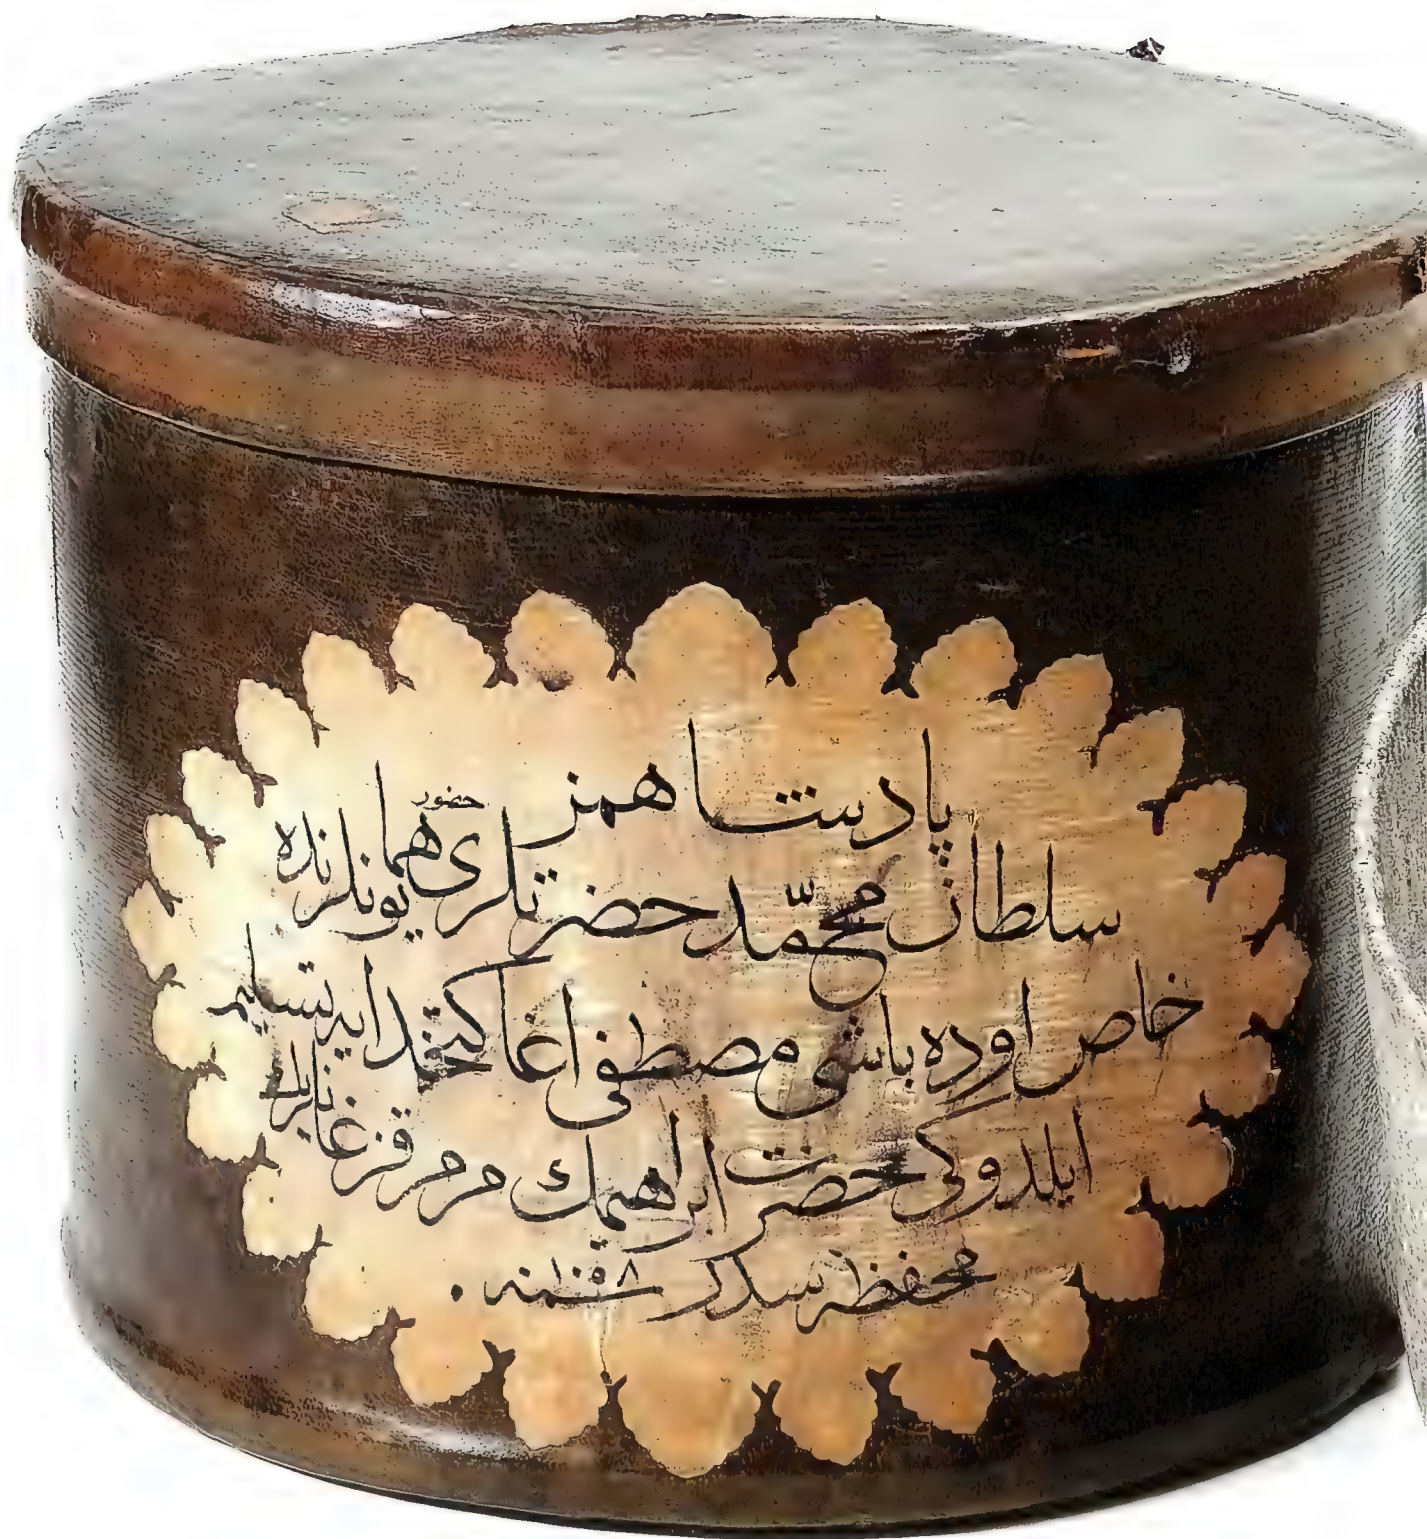 پادشاهمز
سلطان محمّد حضرتلری حضور همایونلرنده
خاص اوده باشی مصطفی اغا كتخدایه تسلیم
ایلدوكی حضرت ابراهیمك مرمر قزغانلرینك
محفظه سیدر سنه ١٠٥٨